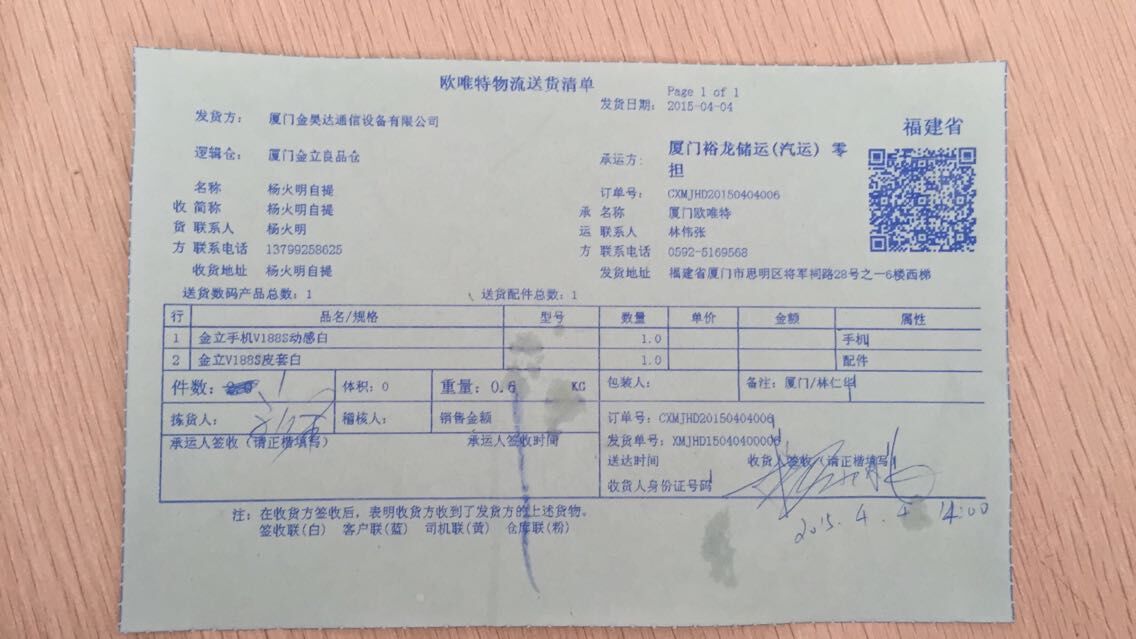 欧唯特物流送货清单
Page 1 of 1
发货日期: 2015-04-04
发货方: 厦门金昊达通信设备有限公司
福建省
逻辑仓: 厦门金立良品仓
承运方: 厦门裕龙储运(汽运) 零担
名称 杨火明自提
订单号: CXMJHD20150404006
收 简称 杨火明自提
承 名称 厦门欧唯特
货 联系人 杨火明
运 联系人 林伟张
方 联系电话 13799258625
方 联系电话 0592-5169568
收货地址 杨火明自提
发货地址 福建省厦门市思明区将军祠路28号之一6楼西梯
送货数码产品总数: 1 送货配件总数: 1
行 品名/规格 型号 数量 单价 金额 属性
1 金立手机V188S动感白 1.0 手机
2 金立V188S皮套白 1.0 配件
件数: 1 体积: 0 重量: 0.6 KG 包装人: 备注: 厦门/林仁华
拣货人: 稽核人: 销售金额 订单号: CXMJHD20150404006
承运人签收(请正楷填写) 承运人签收时间 发货单号: XMJHD15040400006
送达时间 收货人签收(请正楷填写)
收货人身份证号码
2015.4.4 14:00
注: 在收货方签收后, 表明收货方收到了发货方的上述货物。
签收联(白) 客户联(蓝) 司机联(黄) 仓库联(粉)